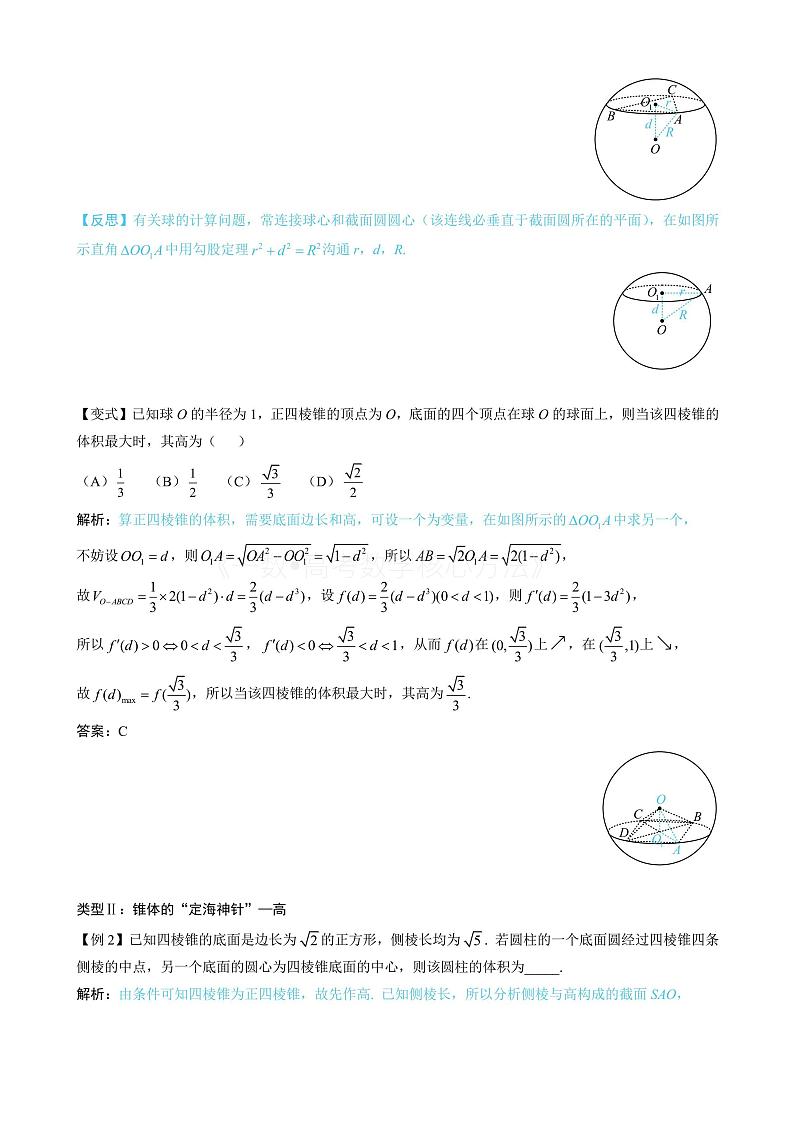 C
O₁ r
B A
d R
O
【反思】有关球的计算问题，常连接球心和截面圆圆心（该连线必垂直于截面圆所在的平面），在如图所
示直角 ΔOO₁A 中用勾股定理 r² + d² = R² 沟通 r，d，R.
O₁ r A
d R
O
【变式】已知球 O 的半径为 1，正四棱锥的顶点为 O，底面的四个顶点在球 O 的球面上，则当该四棱锥的
体积最大时，其高为（ ）
（A）1/3 （B）1/2 （C）√3/3 （D）√2/2
解析：算正四棱锥的体积，需要底面边长和高，可设一个为变量，在如图所示的 ΔOO₁A 中求另一个，
不妨设 OO₁ = d，则 O₁A = √(OA² − OO₁²) = √(1 − d²)，所以 AB = √2O₁A = √(2(1 − d²))，
《一数•高考数学核心方法》
故 V_{O−ABCD} = 1/3 × 2(1 − d²)·d = 2/3(d − d³)，设 f(d) = 2/3(d − d³)(0 < d < 1)，则 f′(d) = 2/3(1 − 3d²)，
所以 f′(d) > 0 ⇔ 0 < d < √3/3，f′(d) < 0 ⇔ √3/3 < d < 1，从而 f(d) 在 (0, √3/3) 上↗，在 (√3/3, 1) 上↘，
故 f(d)_{max} = f(√3/3)，所以当该四棱锥的体积最大时，其高为 √3/3.
答案：C
O
C B
D O₁
A
类型Ⅱ：锥体的“定海神针”—高
【例 2】已知四棱锥的底面是边长为 √2 的正方形，侧棱长均为 √5. 若圆柱的一个底面圆经过四棱锥四条
侧棱的中点，另一个底面的圆心为四棱锥底面的中心，则该圆柱的体积为_____.
解析：由条件可知四棱锥为正四棱锥，故先作高. 已知侧棱长，所以分析侧棱与高构成的截面 SAO，